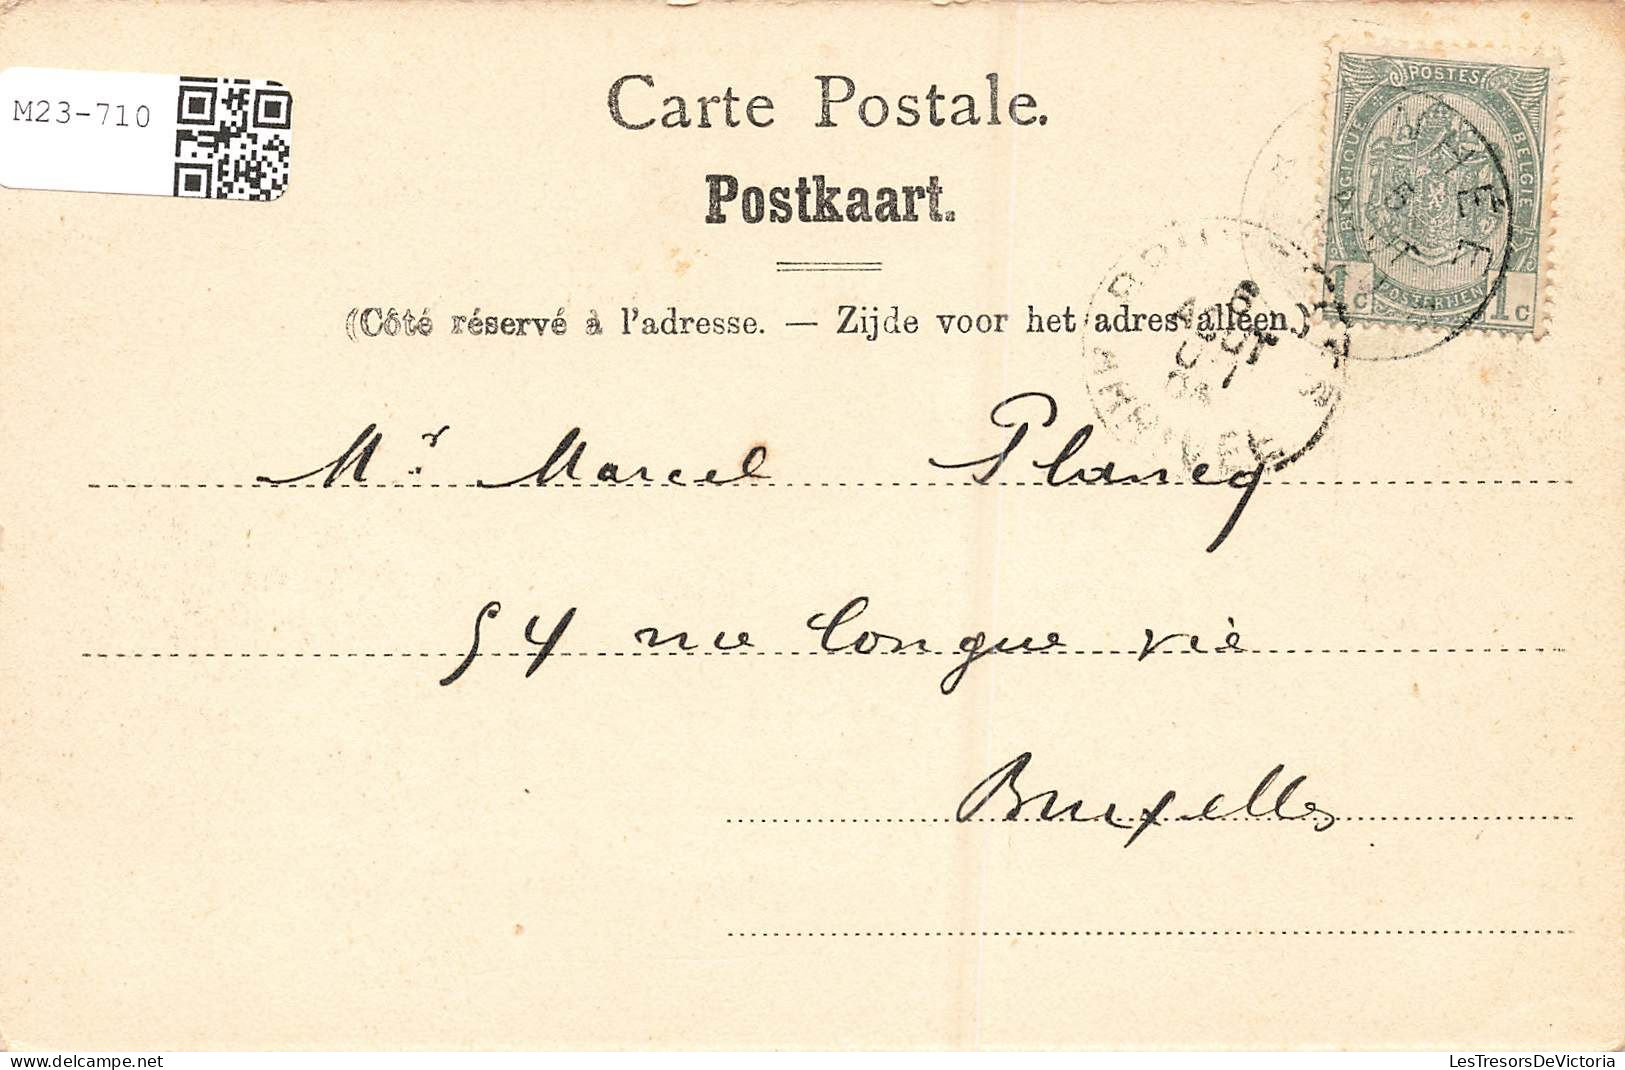 M23-710
Carte Postale.
Postkaart.
(Côté réservé à l'adresse. — Zijde voor het adres alléén.)
POSTES
BELGIQUE
BELGIE
POSTERIJEN
1c 1c
Mr Marcel Plancq
54 rue longue vie
Bruxelles
delcampe.net
LesTresorsDeVictoria